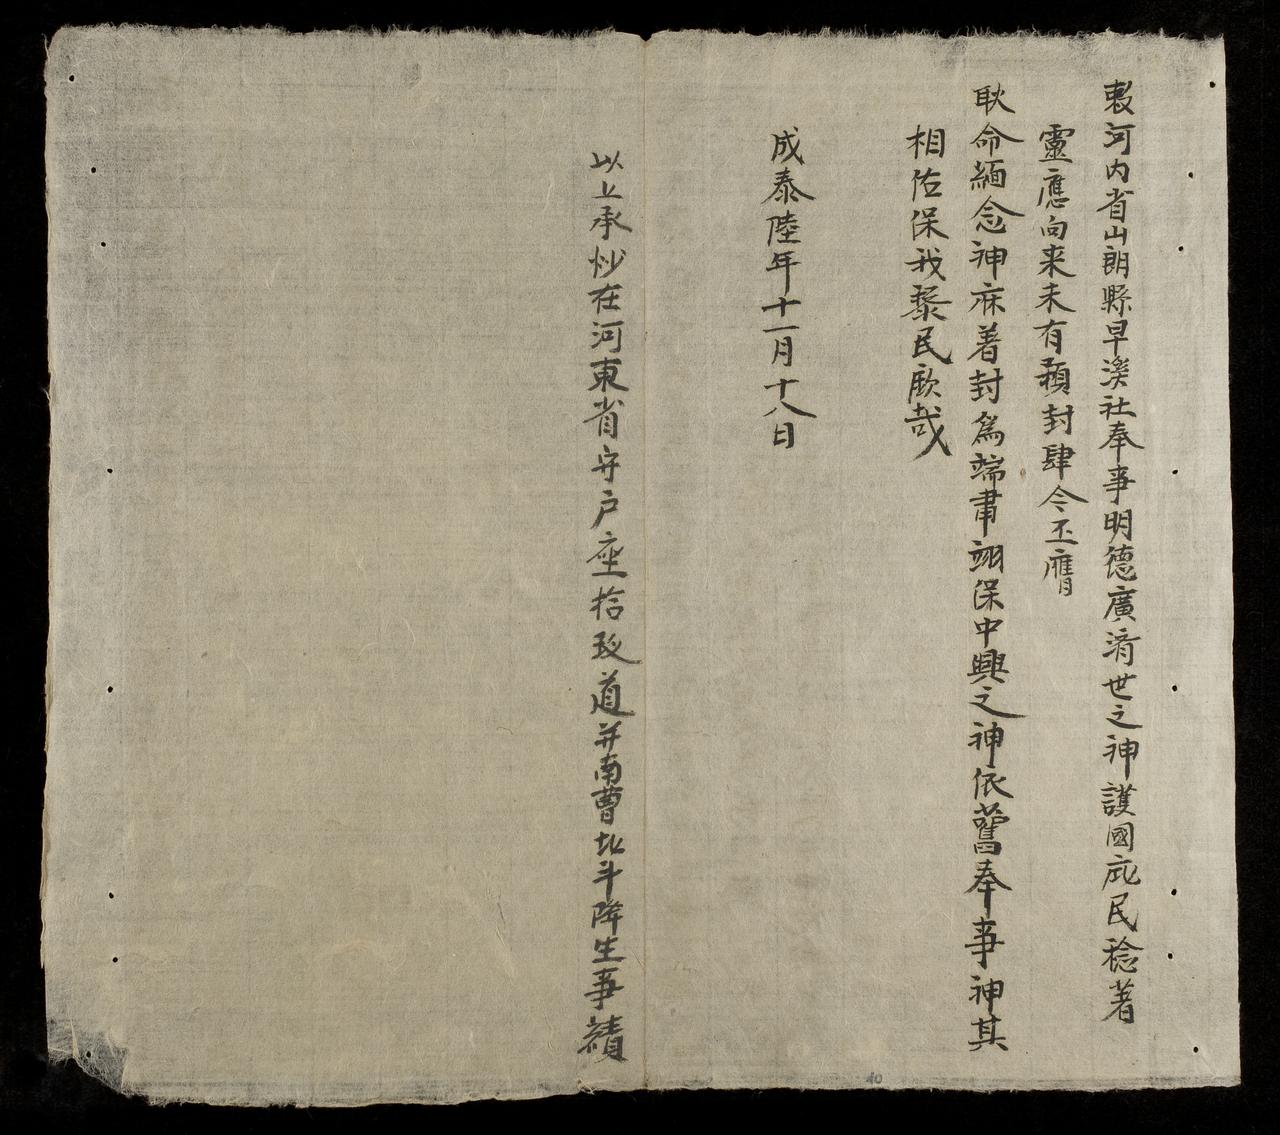 敕河内省山朗縣早溪社奉事明德廣濟世之神護國庇民稔著
靈應向来未有預封肆今丕膺
耿命緬念神庥著封爲端肅翊保中興之神依舊奉事神其
相佑保我黎民欽哉
成泰陸年十一月十八日
以上承抄在河東省守户座拾玖道并南曹北斗降生事蹟
40